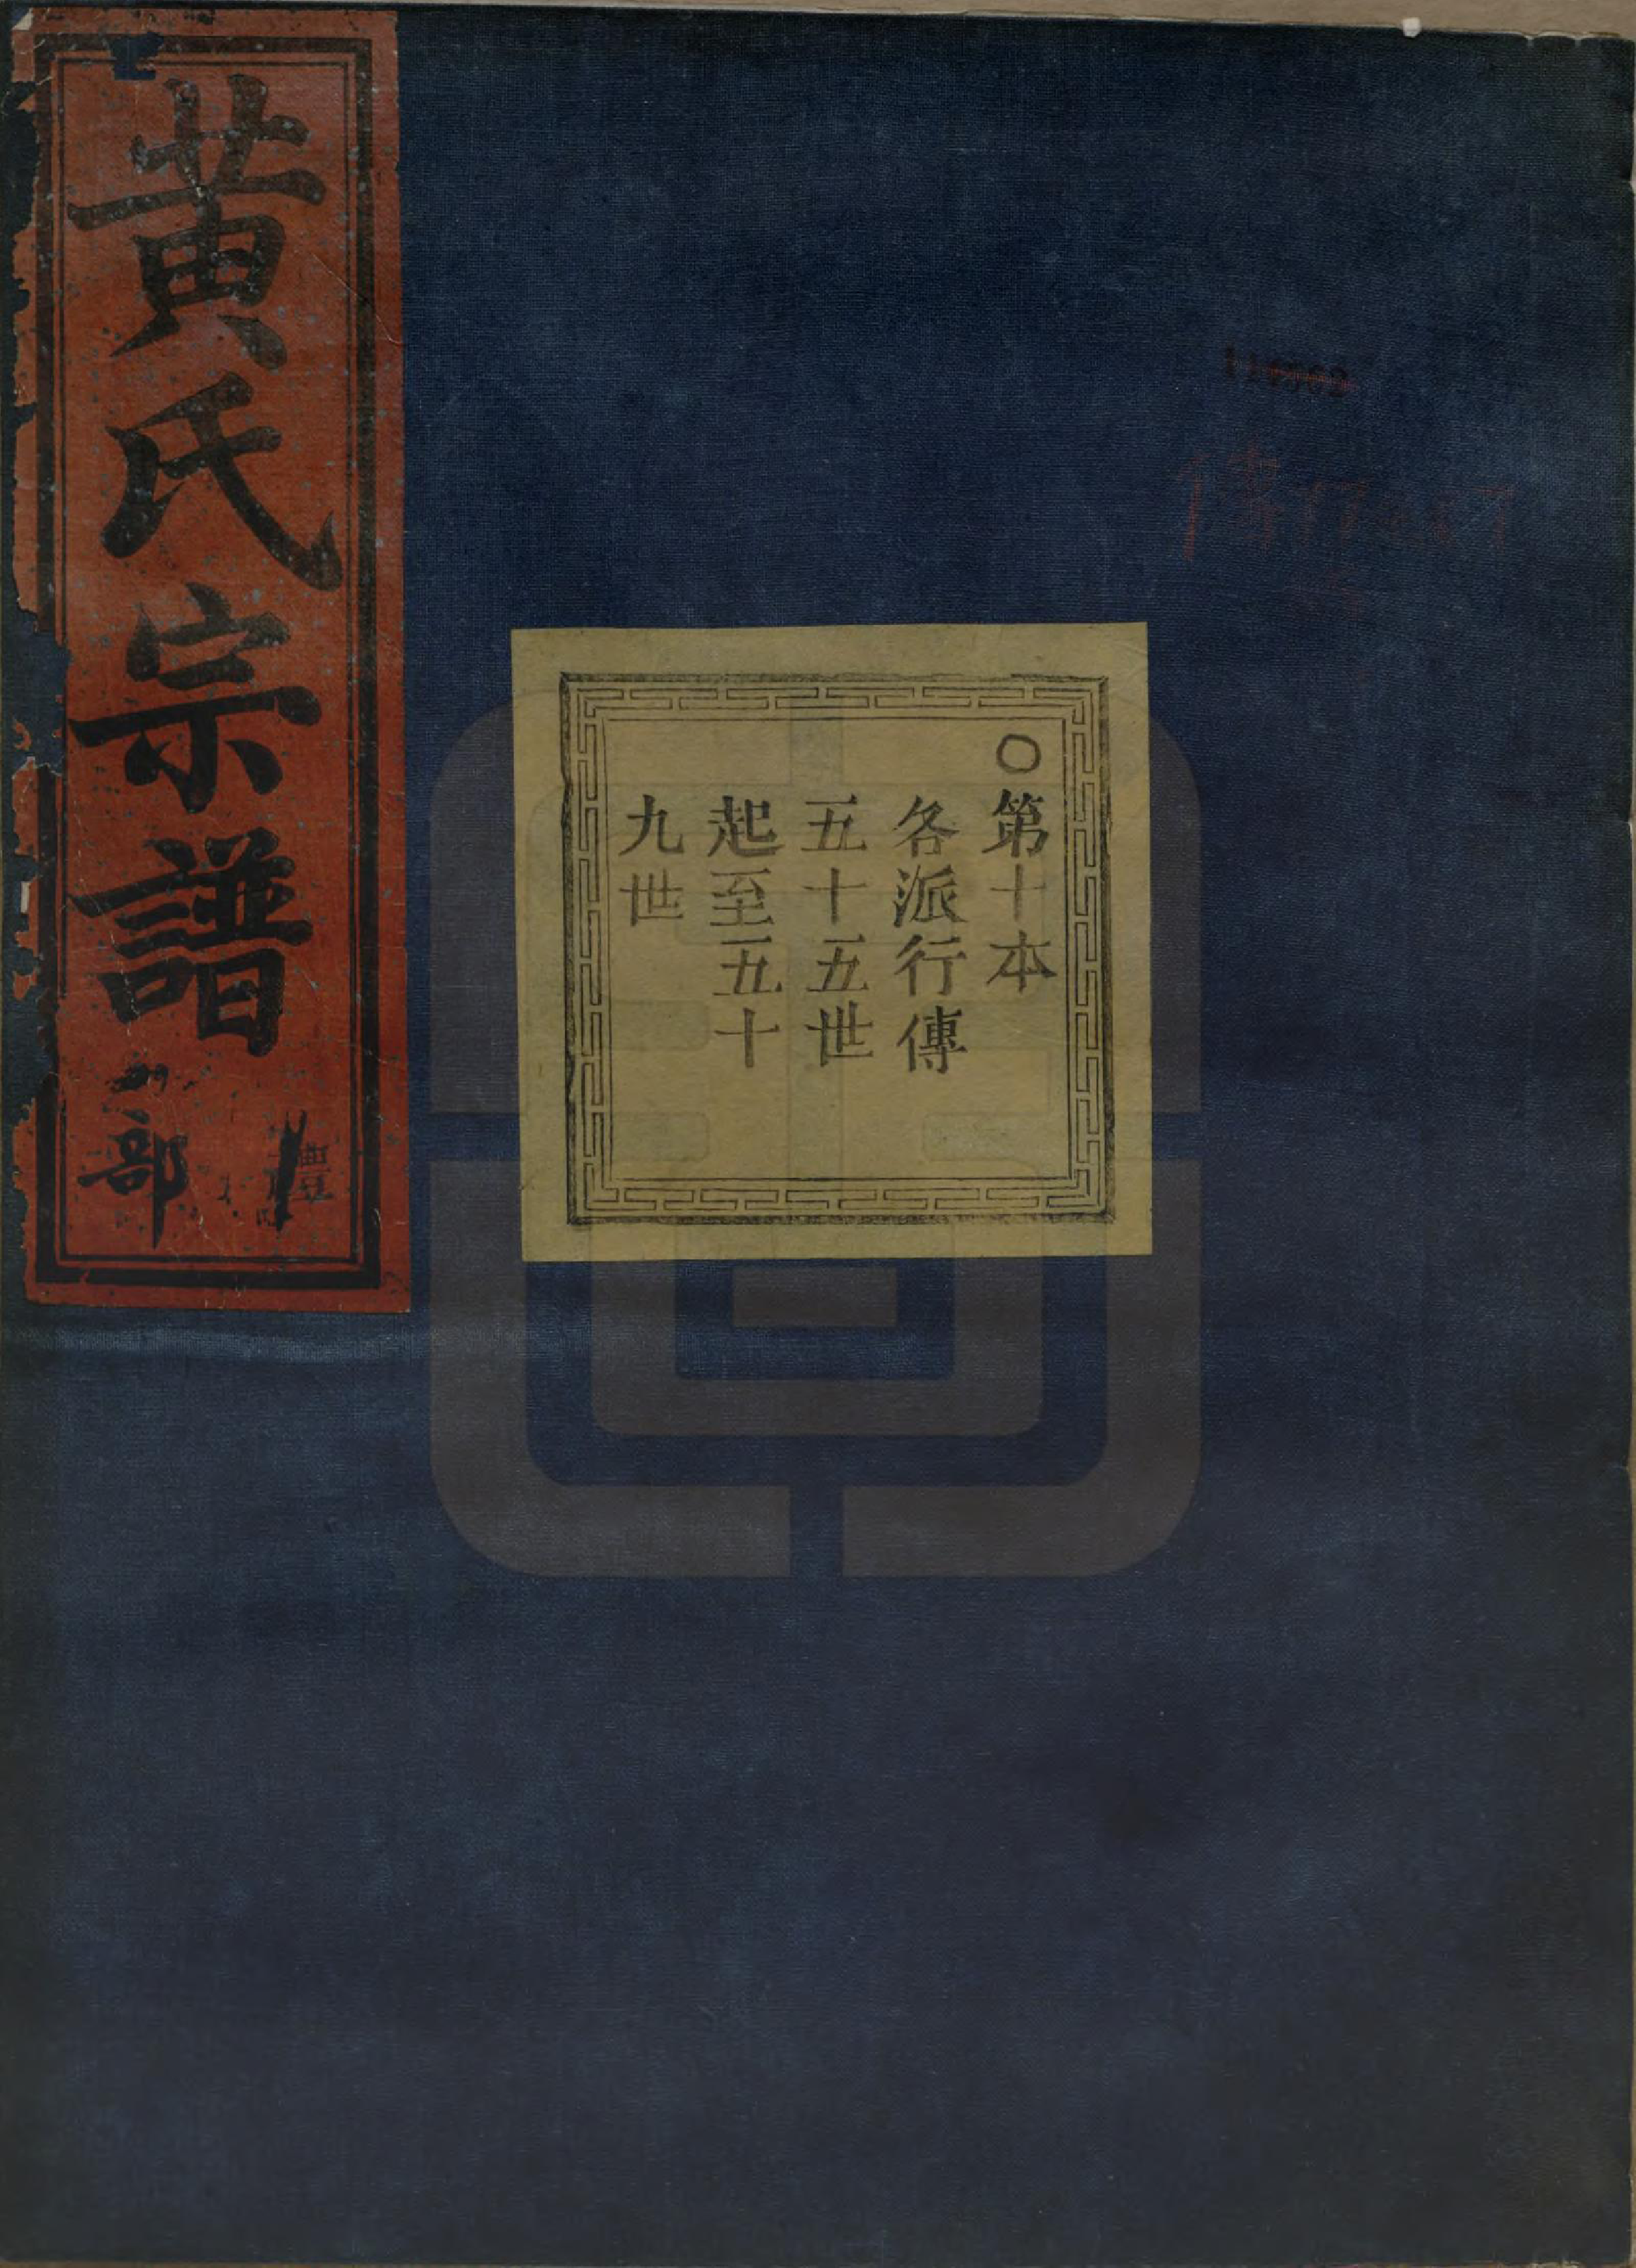 黄氏宗譜
部
禮
〇第十本
各派行傳
五十五世
起至五十
九世